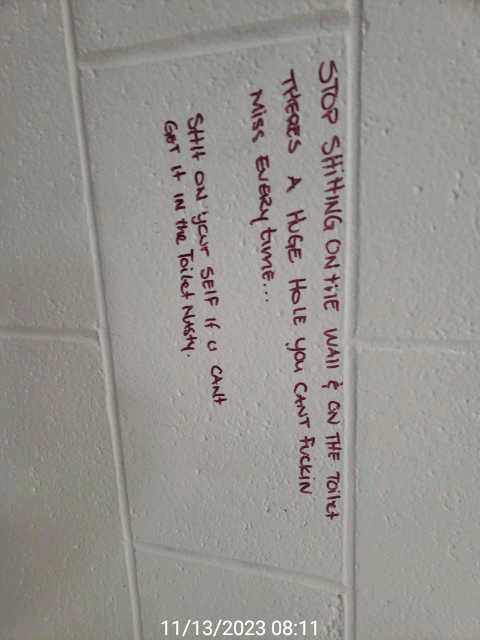 STOP SHITTING ON tHE WAll & ON THE TOilet
THERES A HUGE HOLE YOU CANT FUCKIN
MISS EVERY time...
SHit ON your SElF If U CANt
GET It IN the Toilet NASty.
11/13/2023 08:11